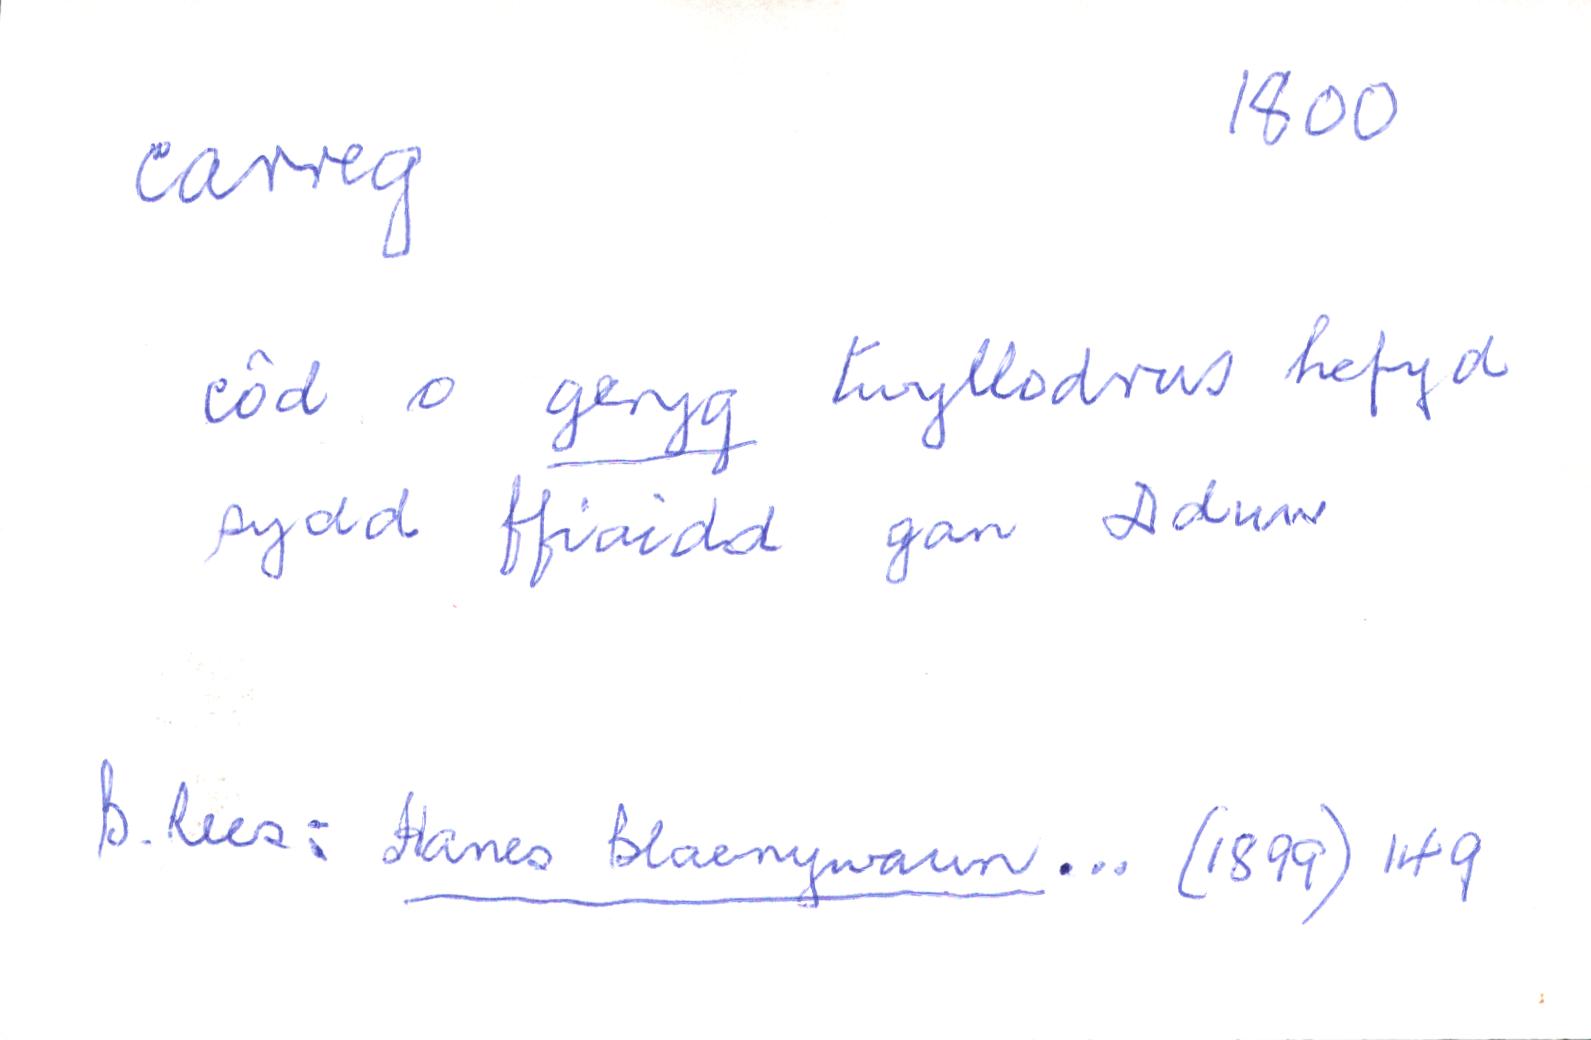 1800
carreg
côd o geryg twyllodrus hefyd
sydd ffiaidd gan Dduw
B. Rees: Hanes Blaenywaun... (1899) 149